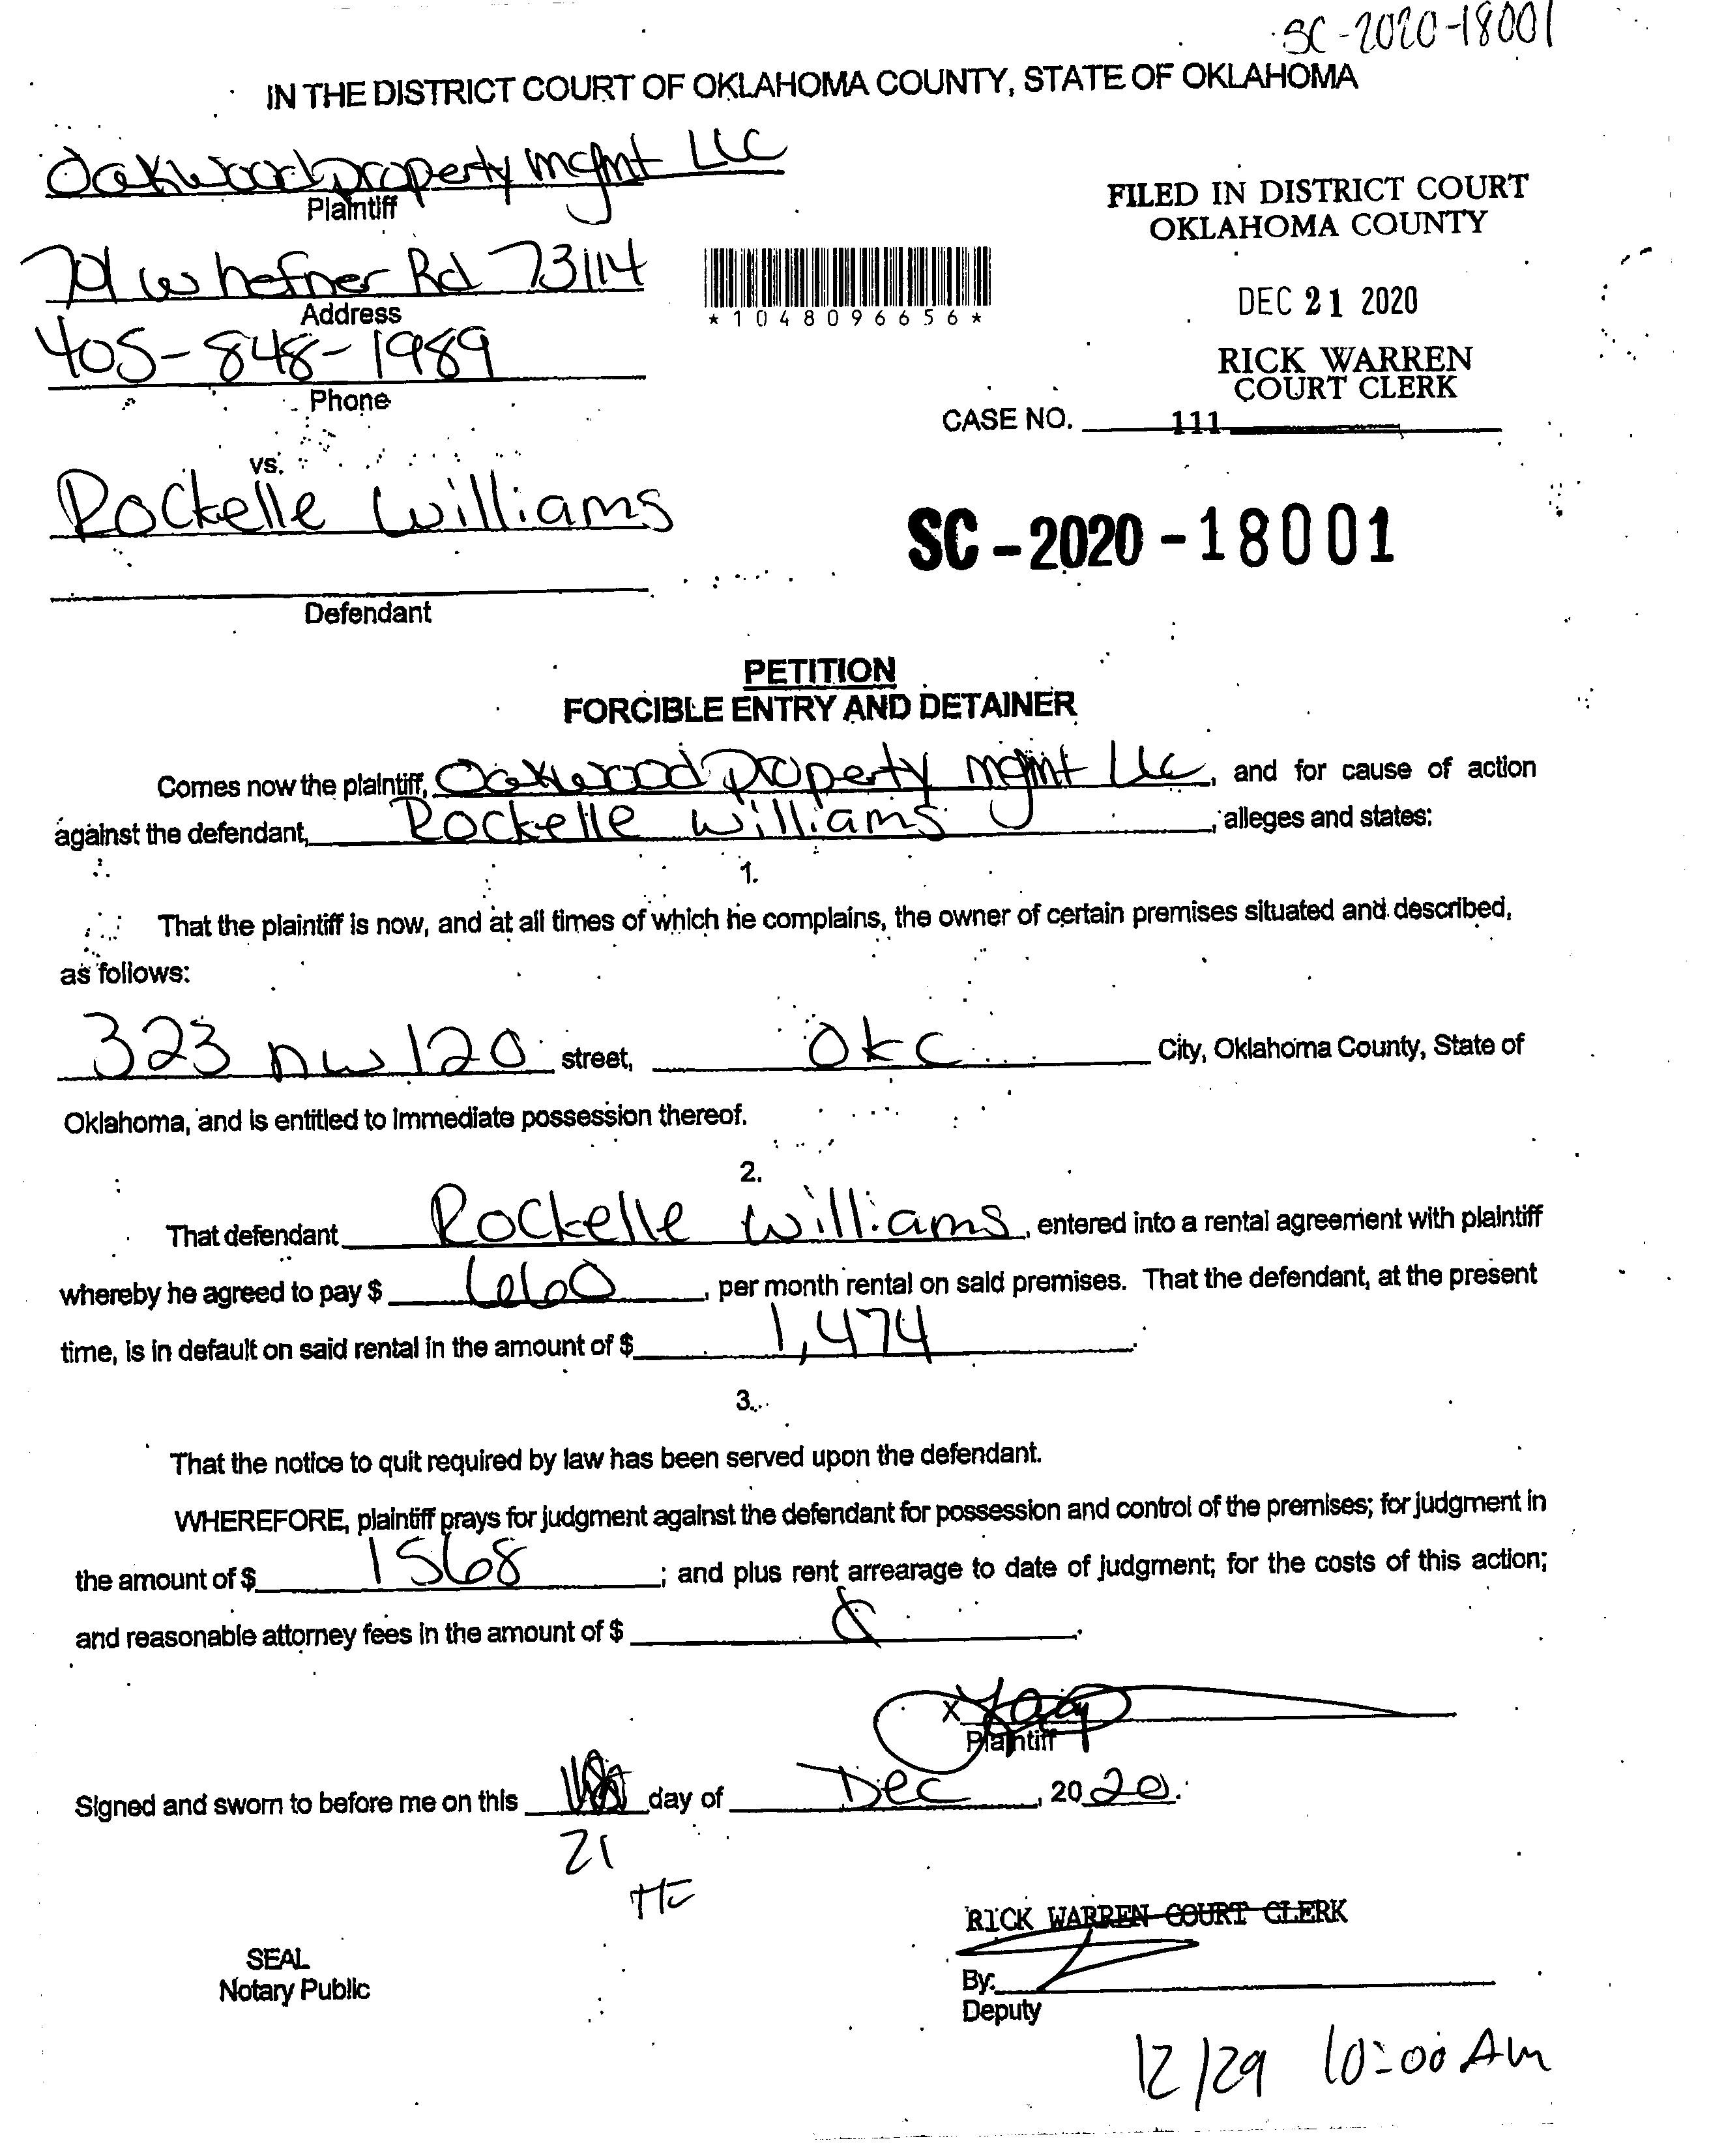 SC-2020-18001
IN THE DISTRICT COURT OF OKLAHOMA COUNTY, STATE OF OKLAHOMA
Oakwood property mgmt LLC
Plaintiff
701 W hefner Rd 73114
Address
405-848-1989
Phone
FILED IN DISTRICT COURT
OKLAHOMA COUNTY
DEC 21 2020
RICK WARREN
COURT CLERK
*1048096656*
CASE NO. 111
vs.
Rockelle Williams
Defendant
SC-2020-18001
PETITION
FORCIBLE ENTRY AND DETAINER
Comes now the plaintiff, Oakwood Property mgmt LLC, and for cause of action
against the defendant, Rockelle Williams, alleges and states:
1.
That the plaintiff is now, and at all times of which he complains, the owner of certain premises situated and described,
as follows:
323 nw 120 street, OKC City, Oklahoma County, State of
Oklahoma, and is entitled to immediate possession thereof.
2.
That defendant Rockelle Williams, entered into a rental agreement with plaintiff
whereby he agreed to pay $ 660, per month rental on said premises. That the defendant, at the present
time, is in default on said rental in the amount of $ 1,474.
3.
That the notice to quit required by law has been served upon the defendant.
WHEREFORE, plaintiff prays for judgment against the defendant for possession and control of the premises; for judgment in
the amount of $ 1568; and plus rent arrearage to date of judgment; for the costs of this action;
and reasonable attorney fees in the amount of $
X
Plaintiff
Signed and sworn to before me on this day of Dec, 2020.
21
RICK WARREN COURT CLERK
SEAL
Notary Public
By:
Deputy
12/29 10:00 AM